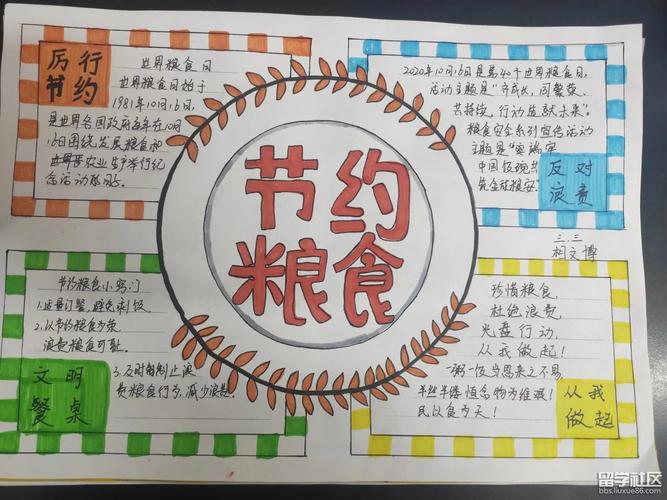 厉行
节约
世界粮食日
世界粮食日始于
1981年10月16日,
是世界各国政府每年在10月
16日围绕发展粮食和
世界农业生产举行纪
念活动的日子。
2020年10月16日是第40个世界粮食日,
活动主题是“齐成长、同繁荣、
共持续,行动造就未来”。
粮食安全系列宣传活动
主题是“端牢
中国饭碗 共
筑全球粮安”
反对
浪费
三.三
相文博
节约
粮食
节约粮食小窍门
1.适量订餐,避免剩饭。
2.以节约粮食为荣
浪费粮食可耻。
3.及时制止浪
费粮食行为,减少浪费。
文明
餐桌
珍惜粮食,
杜绝浪费
光盘行动,
从我做起!
一粥一饭当思来之不易
半丝半缕恒念物力维艰!
民以食为天!
从我
做起
留学社区
bbs.liuxue86.com